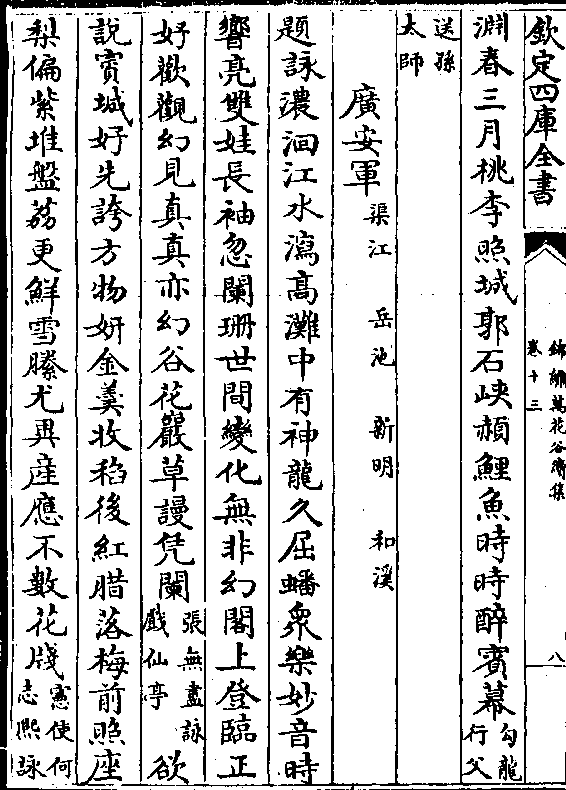 欽定四庫全書
錦繡萬花谷續集
卷十三
八
淵春三月桃李照城郭石峽頳鯉魚時時醉賓幕勾龍行父
送孫太師
廣安軍渠江 岳池 新明 和溪
題詠濃洄江水瀉高灘中有神龍久屈蟠衆樂妙音時
響亮雙娃長袖忽闌珊世間變化無非幻閣上登臨正
好歡觀幻見真真亦幻谷花巖草謾凭闌張無盡詠戲仙亭 欲
說賨城好先誇方物妍金羹收稻後紅腊落梅前照座
梨偏紫堆盤荔更鮮雪縢尤異産應不數花牋憲使何志熙詠